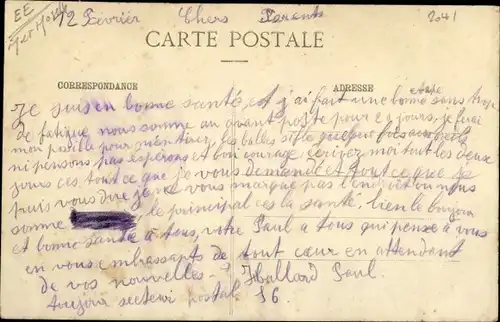 EE
12 Février Chers Parents
2041
CARTE POSTALE
CORRESPONDANCE
ADRESSE
Je suis en bonne santé et j'ai fait une bonne étape sans trop
de fatigue nous somme au avant poste pour 2 jours, je ferai
mon posible pour m'en tirer, les balles sifle quelque fois
ni pensons pas espérons et bon courage écrivez moi tout les deux
jours ces tout ce que je vous demande et tout ce que je
puis vous dire je ne vous marque pas l'endroit ou nous
somme le principal ces la santé, bien le bonjour
et bonne santé a tous, votre Paul a tous qui pense à vous
en vous embrassants de tout cœur en attendant
de vos nouvelles Hallard Paul.
toujour secteur postal 56